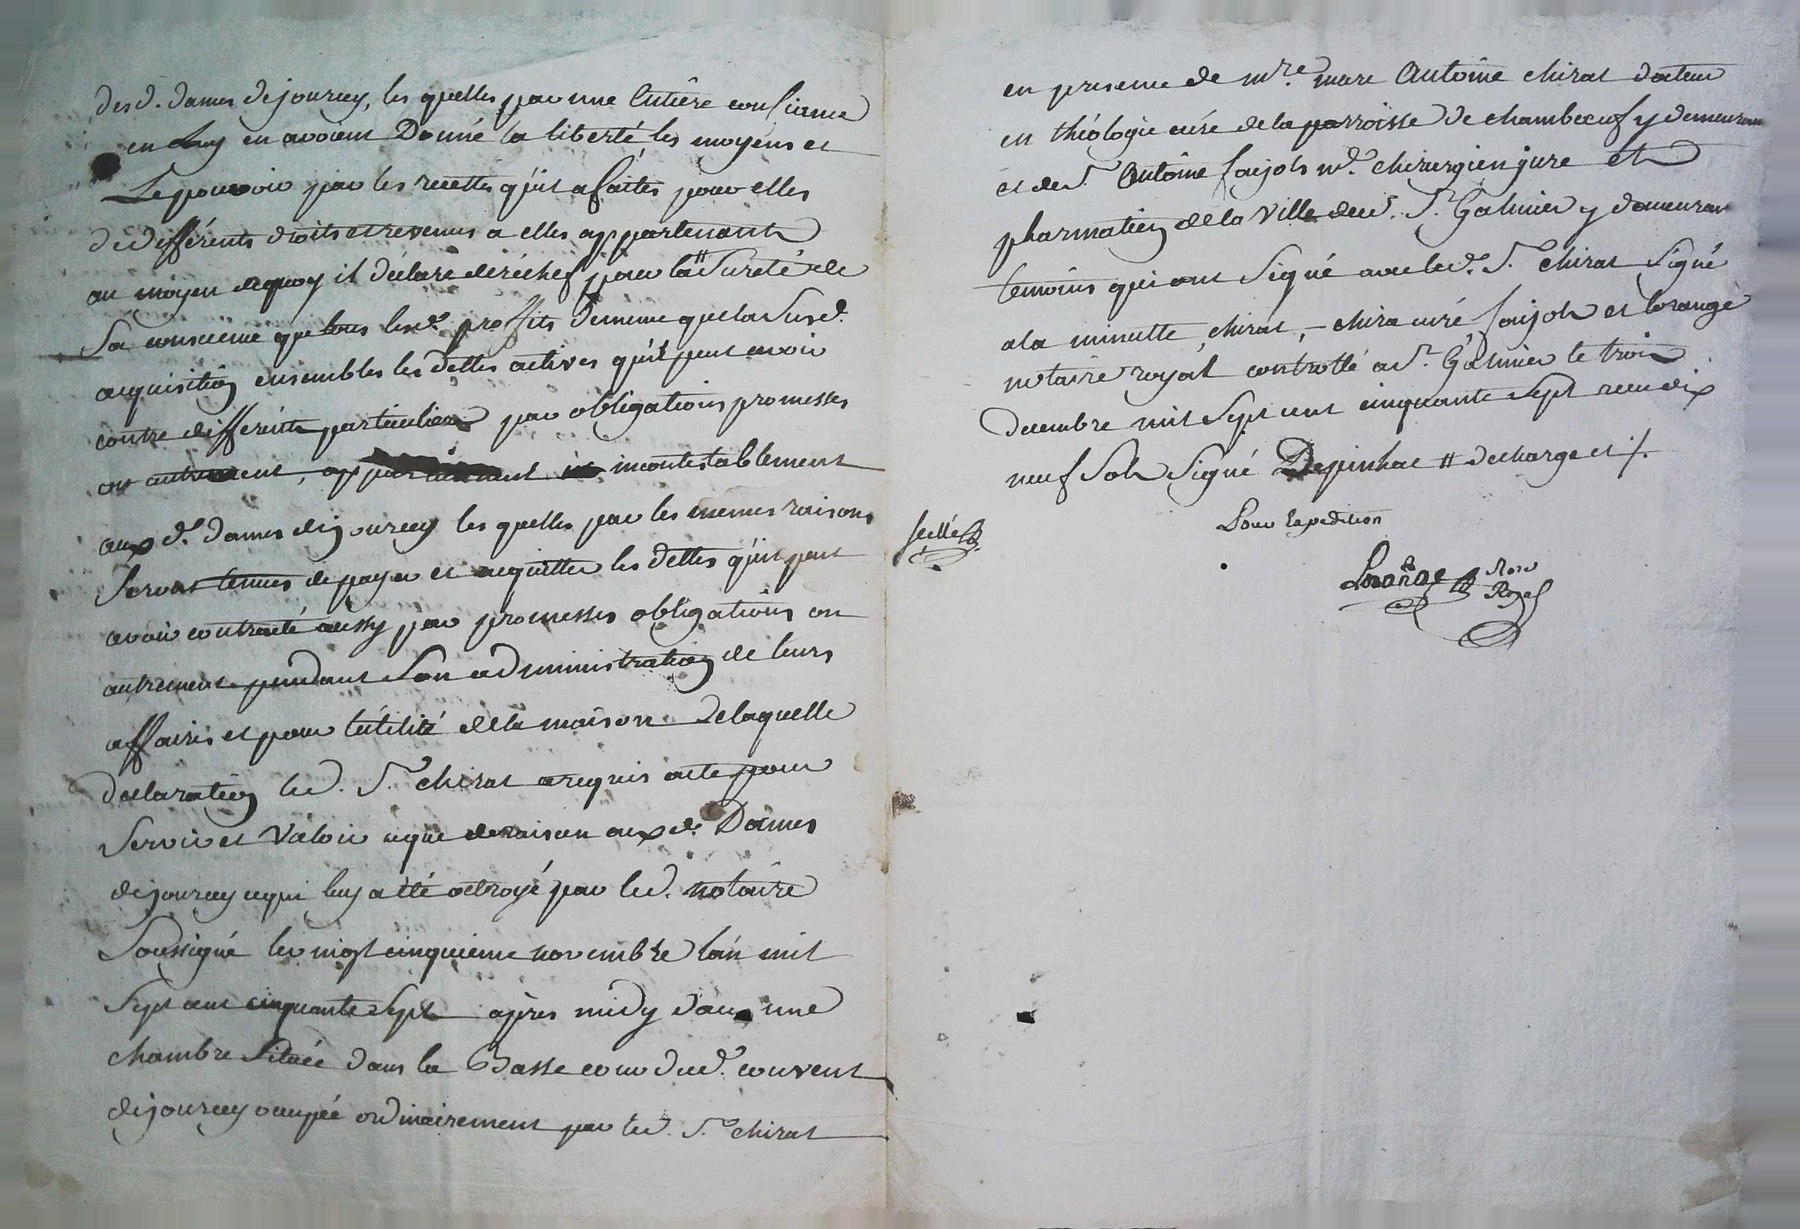 desd. dames dejourcey, les quelles par une Entière confiance
en Luy en avoient Donné la liberté les moyens et
Le pouvoir par les recettes qu'il a faites pour elles
de différents droits et revenus a elles appartenants
au moyen dequoy il déclare derechef pour la Sureté de
Sa conscience que tous lesd. proffits demême que la Susd.
acquisition ensembles les dettes actives qu'il peut avoir
contre différents particuliers par obligations promesses
ou autrement, appartiennent incontestablement
aux d. dames dejourcey les quelles par les memes raisons
Seront tenues de payer et acquitter les dettes qu'il peut
avoir contracté aussy par promesses obligations ou
autrement pendant Son administration de leurs
affaires et pour lutilité de la maison Delaquelle
declaration led. Sr. chirat a requis acte pour
Servir et Valoir ce que de raison aux d. Dames
dejourcey ce qui luy a été octroyé par led. notaire
Soussigné le vingt cinquieme novembre l'an mil
Sept cent cinquante Sept après midy dans une
chambre Située dans la Basse cour dud. couvent
dejourcey occupée ordinairement par led. Sr. chirat
en presence de mre. marc Antoine chirat docteur
en théologie curé de la parroisse de chambœuf y demeurant
et de Sr. Antoine foujols md. chirurgien juré et
pharmatien de la Ville dud. St. Galmier y demeurant
temoins qui ont Signé avec led. Sr. chirat Signé
a la minutte, chirat, chira curé foujols et lorange
notaire royal controllé a St. Galmier le trois
decembre mil Sept cent cinquante Sept receu dix
neuf Sols Signé Depinhac # decharge et /.
Pour Expedition
scellé
Lorange Nore
Royal